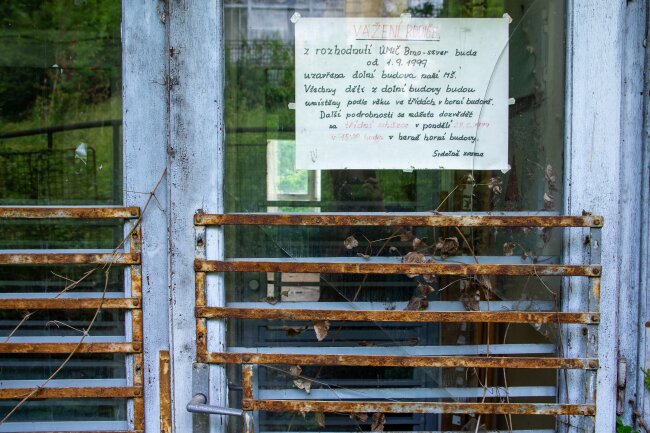 VÁŽENÍ RODIČE
z rozhodnutí ÚMČ Brno-sever buda
od 1.9.1999
uzavřena dolní budova naší MŠ.
Všechny děti z dolní budovy budou
umístěny podle věku ve třídách v horní budově.
Další podrobnosti se můžete dozvědět
na třídní schůzce v pondělí
v hodin v herně horní budovy.
Srdečně zveme